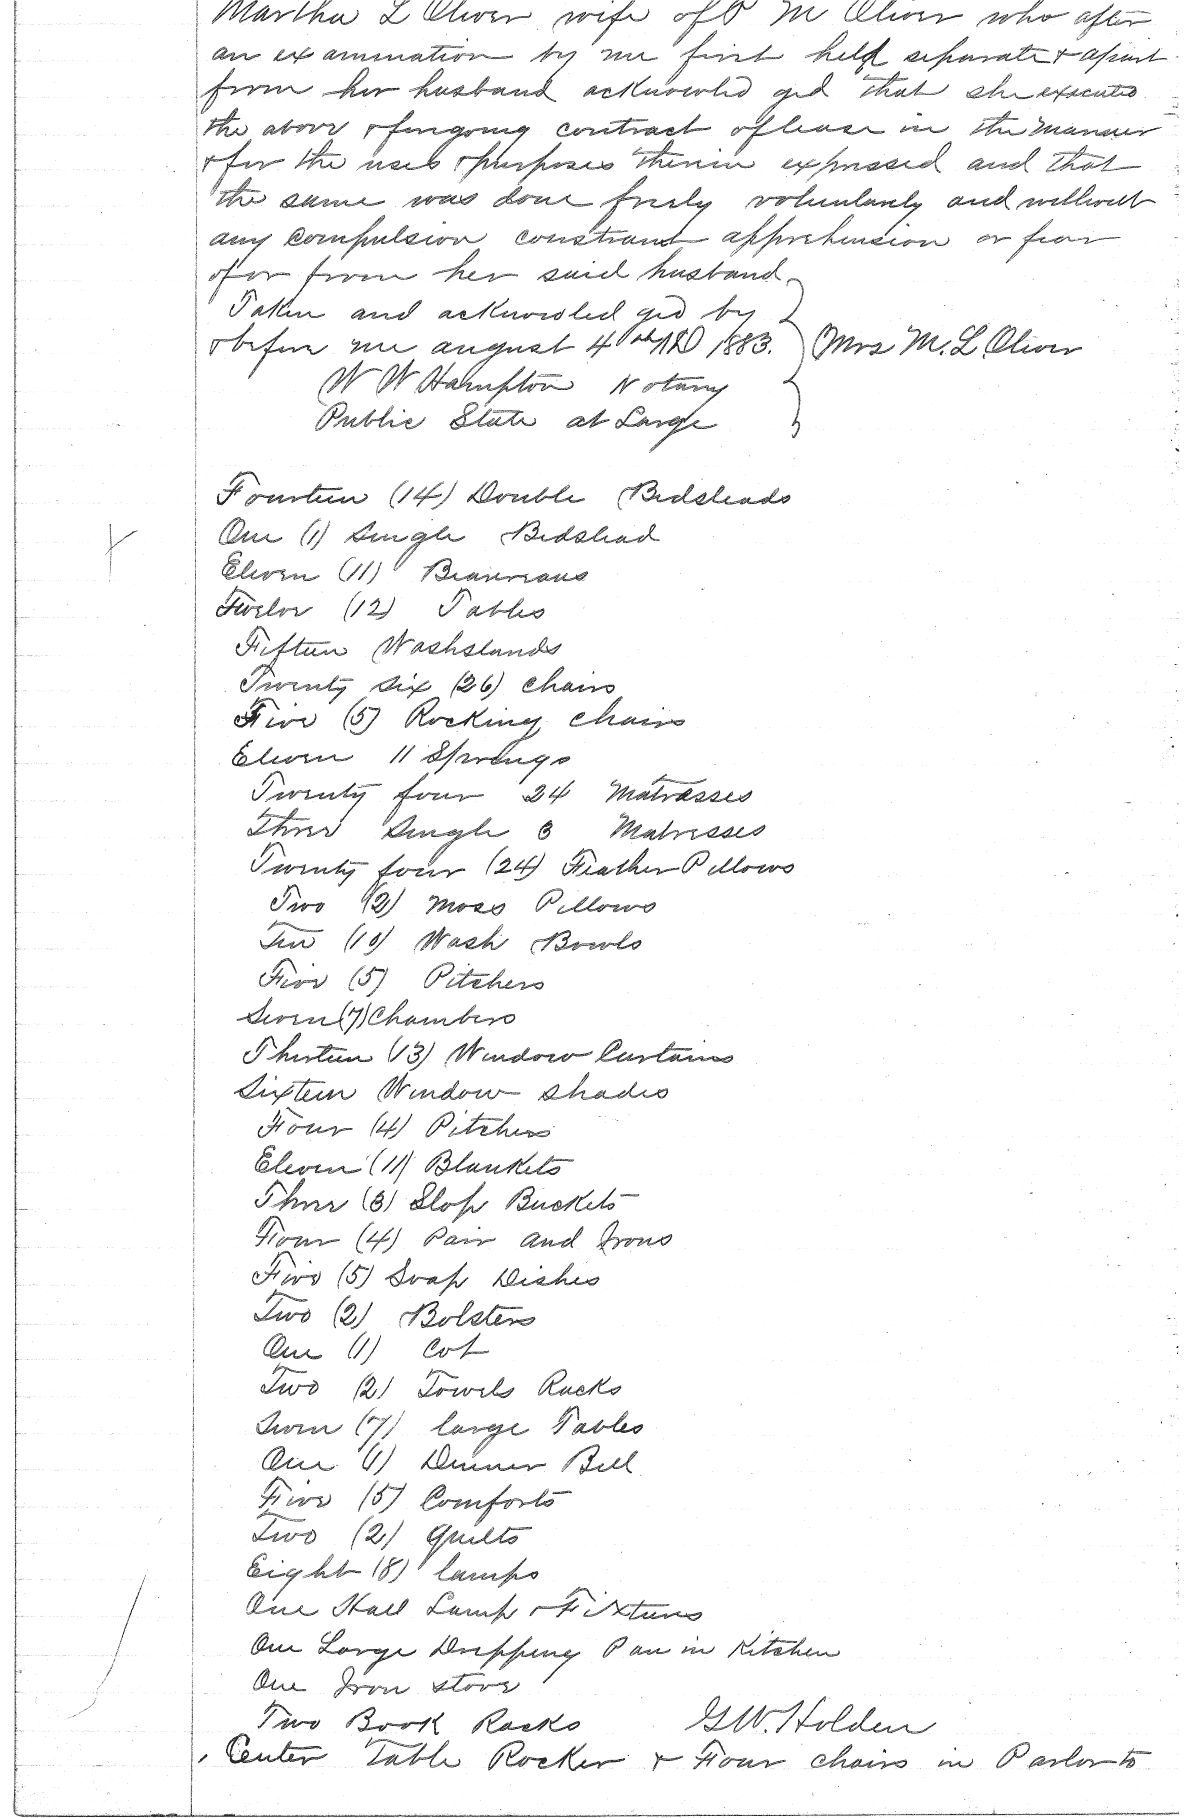 Martha L Oliver wife of P M Oliver who after
an examination by me first held separate & apart
from her husband acknowledged that she executed
the above & foregoing contract of lease in the manner
& for the uses & purposes therein expressed and that
the same was done freely voluntarily and without
any compulsion constraint apprehension or fear
of or from her said husband
Taken and acknowledged by
& before me august 4th AD 1883. Mrs M. L. Oliver
W W Hampton Notary
Public State at Large
Fourteen (14) Double Bedsteads
One (1) Single Bedstead
Eleven (11) Beaureaus
Twelve (12) Tables
Fifteen Washstands
Twenty six (26) chairs
Five (5) Rocking chairs
Eleven 11 Springs
Twenty four 24 Matrasses
Three Single 3 Matresses
Twenty four (24) Feather Pillows
Two (2) Moss Pillows
Ten (10) Wash Bowls
Five (5) Pitchers
Seven (7) Chambers
Thirteen (13) Window Curtains
Sixteen Window shades
Four (4) Pitchers
Eleven (11) Blankets
Three (3) Slop Buckets
Four (4) Pair and Irons
Five (5) Soap Dishes
Two (2) Bolsters
One (1) Cot
Two (2) Towels Racks
Seven (7) large Tables
One (1) Dinner Bell
Five (5) Comforts
Two (2) Quilts
Eight (8) lamps
One Hall Lamp & Fixtures
One Large Dripping Pan in Kitchen
One Iron stove
Two Book Racks G W. Holden
Center Table Rocker & Four chairs in Parlor to